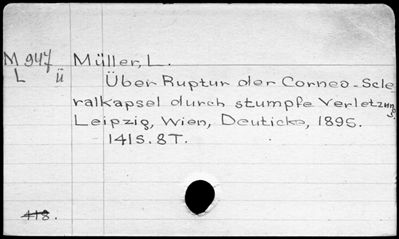 M 947 Müller, L.
L ü
Über Ruptur der Corneo-Scle
ralkapsel durch stumpfe Verletzung
Leipzig, Wien, Deuticke, 1895.
141S. 8T.
418.